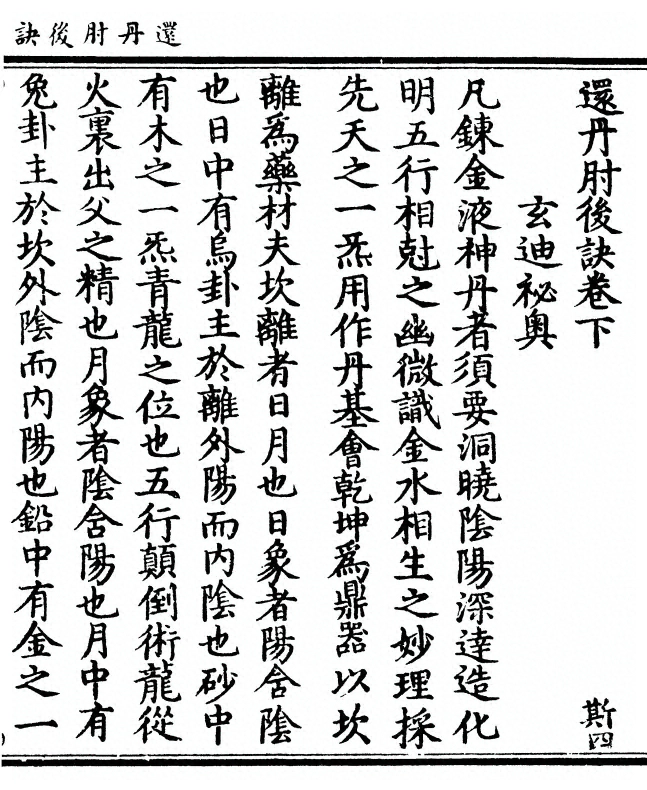 還丹肘後訣
還丹肘後訣卷下
斯四
玄迪祕奥
凡鍊金液神丹者須要洞曉陰陽深達造化
明五行相尅之幽微識金水相生之妙理採
先天之一炁用作丹基會乾坤爲鼎器以坎
離爲藥材夫坎離者日月也日象者陽含陰
也日中有烏卦主於離外陽而内陰也砂中
有木之一炁青龍之位也五行顛倒術龍從
火裏出父之精也月象者陰含陽也月中有
兔卦主於坎外陰而内陽也鉛中有金之一